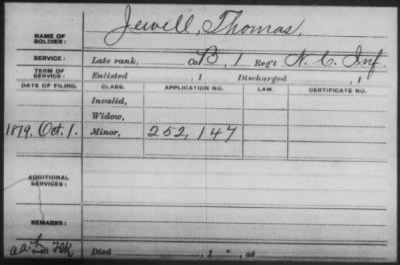 NAME OF SOLDIER: Jewell, Thomas,
SERVICE: Late rank, Co B, 1 Reg't N. C. Inf.
TERM OF SERVICE: Enlisted , 1 Discharged , 1
DATE OF FILING. CLASS. APPLICATION NO. LAW. CERTIFICATE NO.
Invalid,
Widow,
1879, Oct. 1. Minor, 252,147
ADDITIONAL SERVICES:
REMARKS:
Died , 1 , at